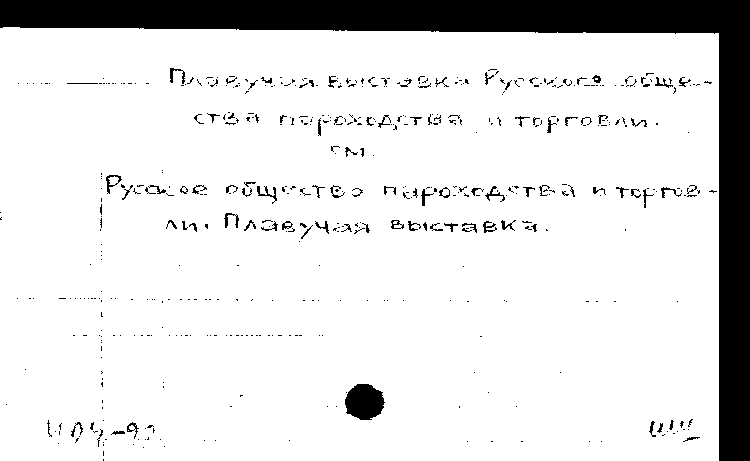 Плавучая выставка Русского обще-
ства пароходства и торговли.
см.
Русское общество пароходства и торгов-
ли. Плавучая выставка.